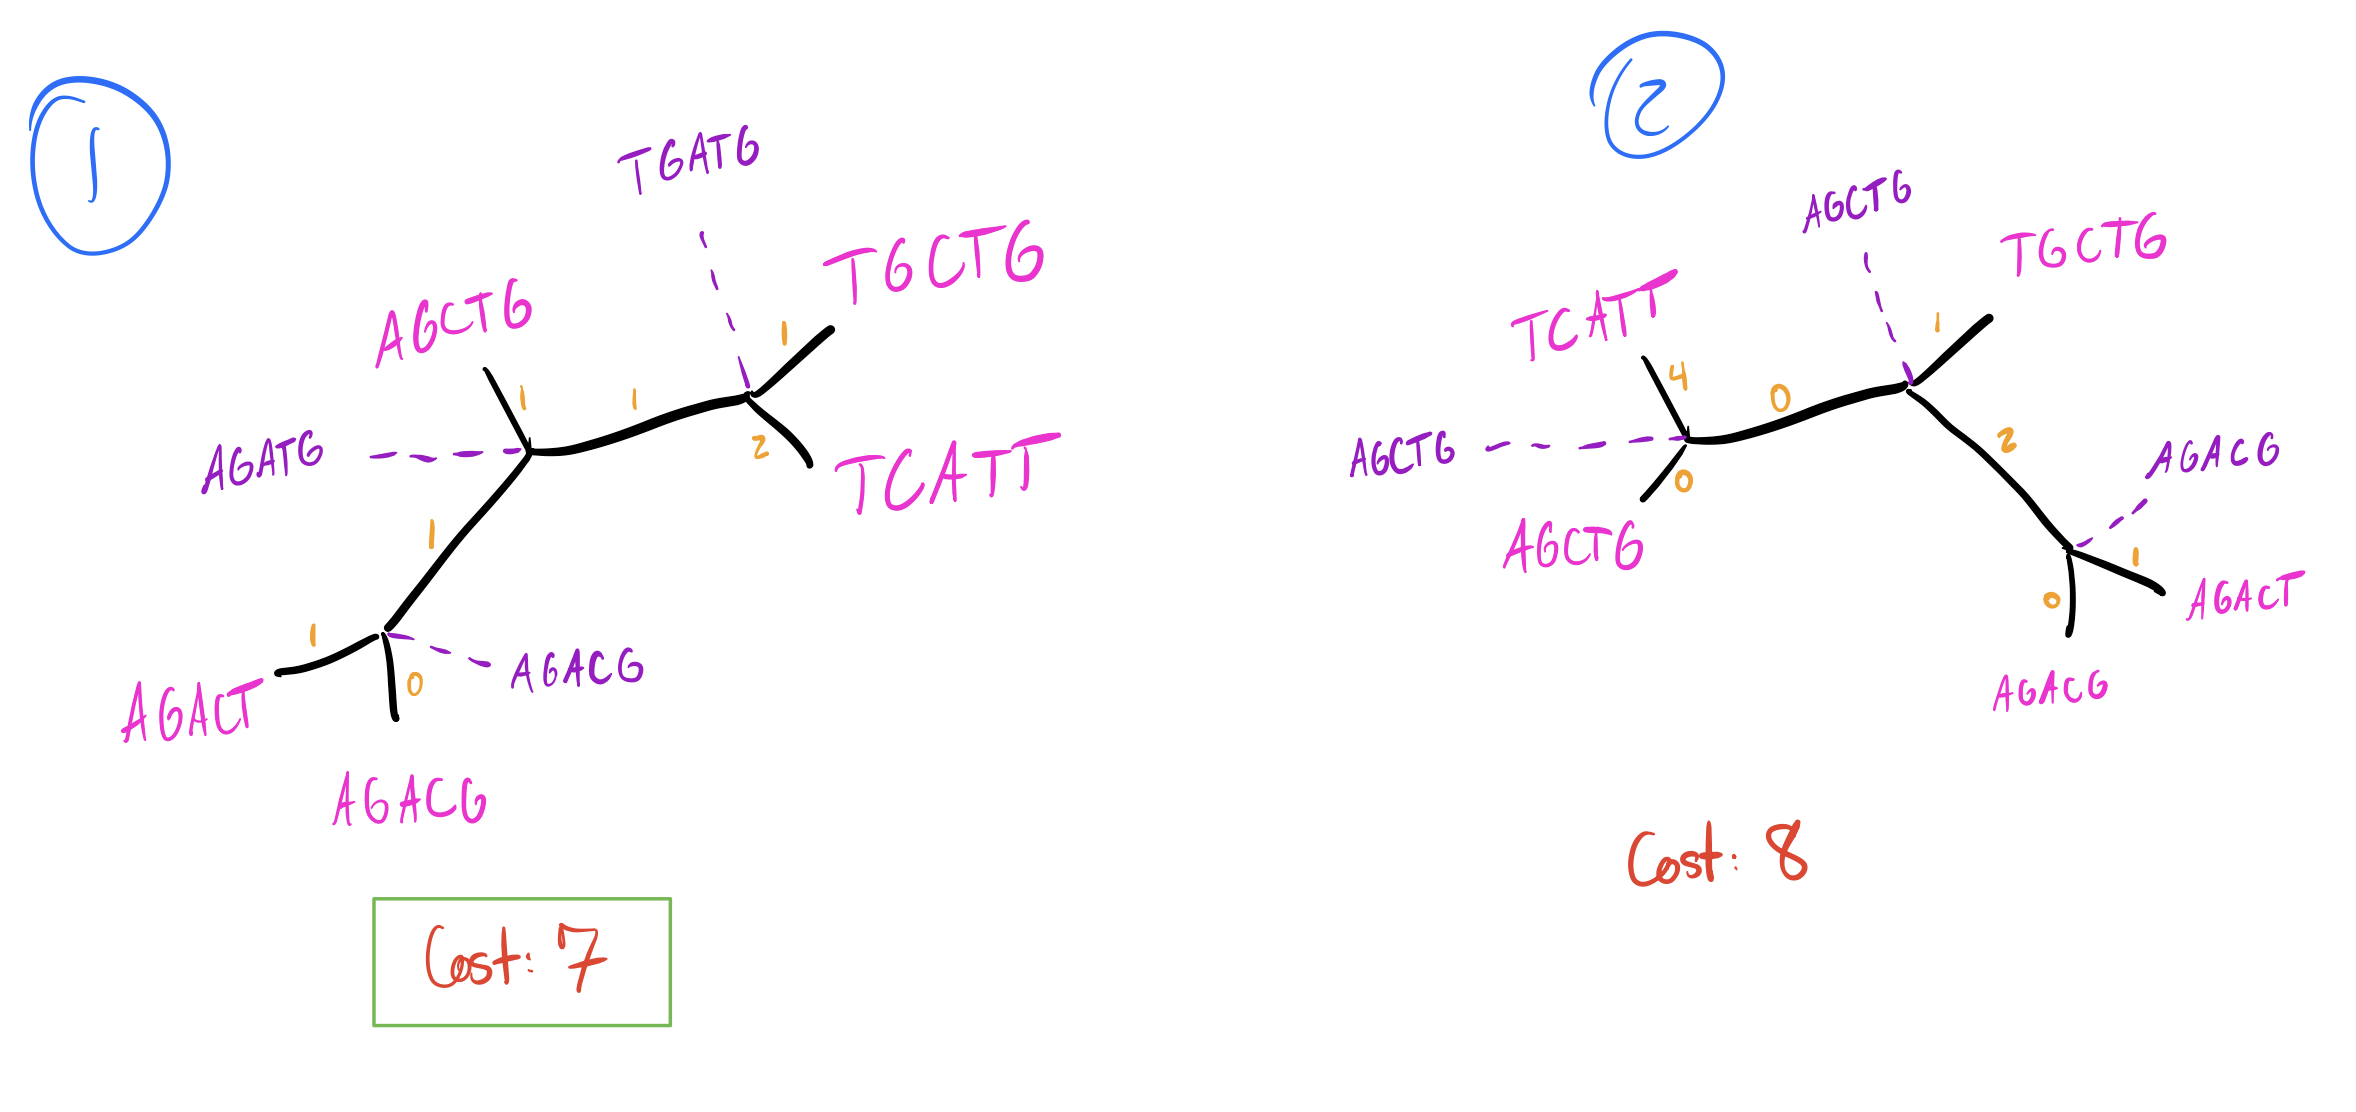 1
TGATG
TGCTG
1
AGCTG
1
1
AGATG
2
TCATT
1
1
AGACT
0
AGACG
AGACG
Cost: 7
2
AGCTG
TGCTG
1
TCATT
4
0
AGCTG
0
AGCTG
2
AGACG
1
AGACT
0
AGACG
Cost: 8